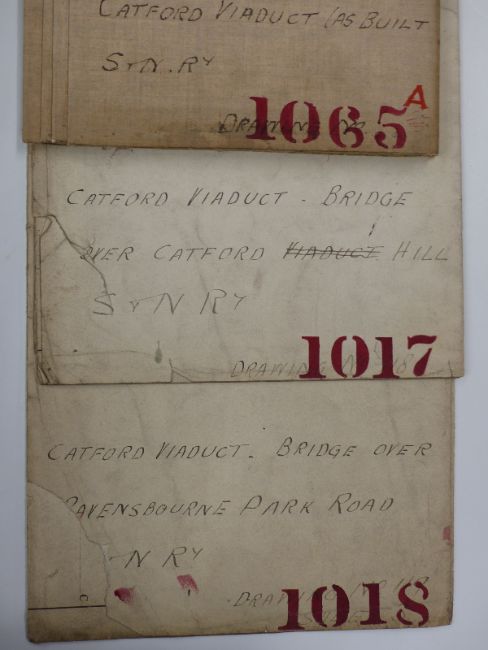 CATFORD VIADUCT (AS BUILT
S & N. RY
A
DRAWING No
1065
CATFORD VIADUCT - BRIDGE
OVER CATFORD VIADUCT HILL
S & N RY
DRAWING No 18
1017
CATFORD VIADUCT. BRIDGE OVER
RAVENSBOURNE PARK ROAD
N RY
DRAWING
1018